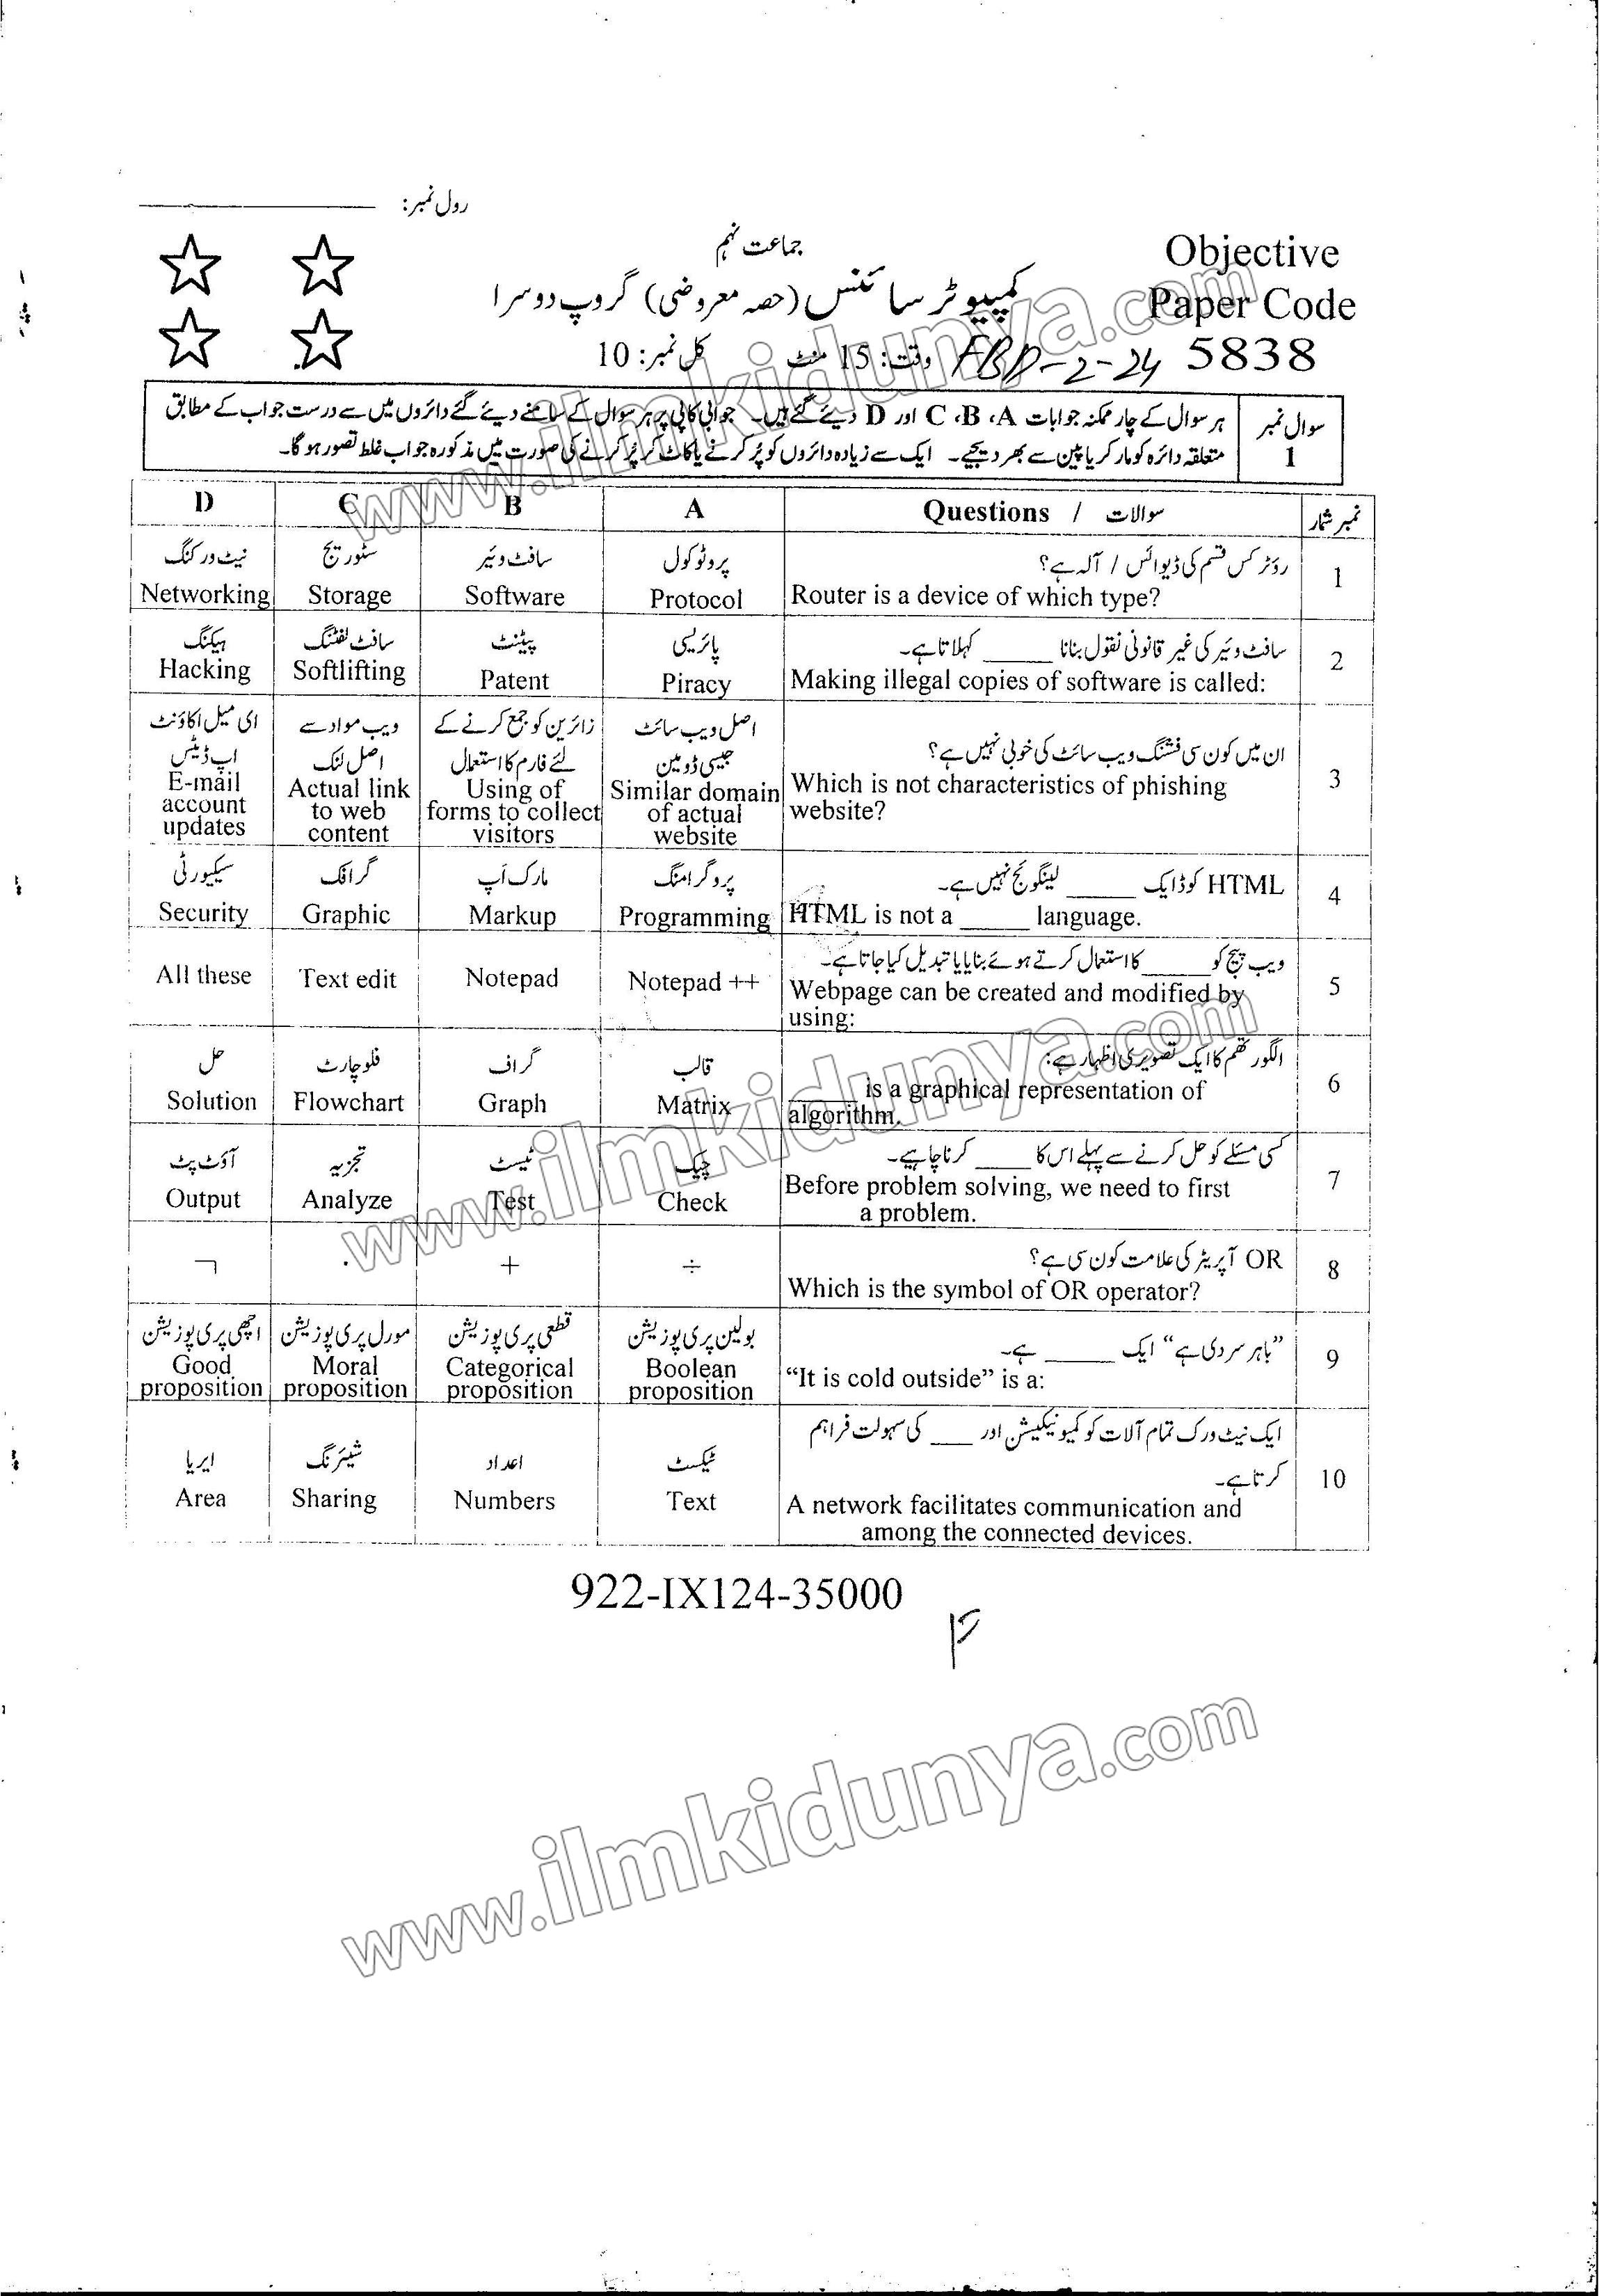 رول نمبر:
جماعت نہم
Objective
Paper Code
کمپیوٹر سائنس (حصہ معروضی) گروپ دوسرا
5838
FBD-2-24
وقت: 15 منٹ
کل نمبر: 10
سوال نمبر 1
ہر سوال کے چار ممکنہ جوابات A، B، C اور D دیئے گئے ہیں۔ جوابی کاپی پر ہر سوال کے سامنے دیئے گئے دائروں میں سے درست جواب کے مطابق
متعلقہ دائرہ کو مارکر یا پین سے بھر دیجیے۔ ایک سے زیادہ دائروں کو پُر کرنے یا کاٹ کر پُر کرنے کی صورت میں مذکورہ جواب غلط تصور ہوگا۔
نمبر شمار
سوالات / Questions
A
B
C
D
1
روٹر کس قسم کی ڈیوائس / آلہ ہے؟
Router is a device of which type?
پروٹوکول
Protocol
سافٹ ویئر
Software
سٹوریج
Storage
نیٹ ورکنگ
Networking
2
سافٹ ویئر کی غیر قانونی نقول بنانا _____ کہلاتا ہے۔
Making illegal copies of software is called:
پائریسی
Piracy
پیٹنٹ
Patent
سافٹ لفٹنگ
Softlifting
ہیکنگ
Hacking
3
ان میں کون سی فشنگ ویب سائٹ کی خوبی نہیں ہے؟
Which is not characteristics of phishing
website?
اصل ویب سائٹ
جیسی ڈومین
Similar domain
of actual
website
زائرین کو جمع کرنے کے
لئے فارم کا استعمال
Using of
forms to collect
visitors
ویب مواد سے
اصل لنک
Actual link
to web
content
ای میل اکاؤنٹ
اپ ڈیٹس
E-mail
account
updates
4
HTML کوڈ ایک _____ لینگوئج نہیں ہے۔
HTML is not a _____ language.
پروگرامنگ
Programming
مارک اَپ
Markup
گرافک
Graphic
سیکیورٹی
Security
5
ویب پیج کو _____ کا استعمال کرتے ہوئے بنایا یا تبدیل کیا جاتا ہے۔
Webpage can be created and modified by
using:
Notepad ++
Notepad
Text edit
All these
6
الگورتھم کا ایک تصویری اظہار ہے:
_____ is a graphical representation of
algorithm.
قالب
Matrix
گراف
Graph
فلوچارٹ
Flowchart
حل
Solution
7
کسی مسئلے کو حل کرنے سے پہلے اس کا ____ کرنا چاہیے۔
Before problem solving, we need to first
a problem.
چیک
Check
ٹیسٹ
Test
تجزیہ
Analyze
آؤٹ پٹ
Output
8
OR آپریٹر کی علامت کون سی ہے؟
Which is the symbol of OR operator?
÷
+
.
¬
9
”باہر سردی ہے“ ایک _____ ہے۔
“It is cold outside” is a:
بولین پری پوزیشن
Boolean
proposition
قطعی پری پوزیشن
Categorical
proposition
مورل پری پوزیشن
Moral
proposition
اچھی پری پوزیشن
Good
proposition
10
ایک نیٹ ورک تمام آلات کو کمیونیکیشن اور ___ کی سہولت فراہم
کرتا ہے۔
A network facilitates communication and
among the connected devices.
ٹیکسٹ
Text
اعداد
Numbers
شیئرنگ
Sharing
ایریا
Area
922-IX124-35000
www.ilmkidunya.com
www.ilmkidunya.com
www.ilmkidunya.com